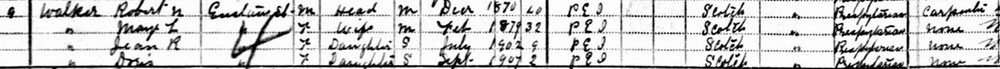 Walker Robert N M Head M Decr 1870 40 P E I Scotch " Presbyterian Carpenter
" Mary L " F Wife M Feb 1879 32 P E I Scotch " Presbyterian none
" Jean R " F Daughter S July 1902 9 P E I Scotch " Presbyterian none
" Doris " F Daughter S Sept 1907 2 P E I Scotch " Presbyterian none